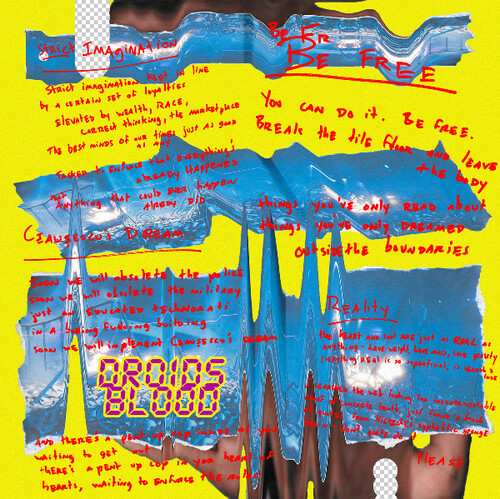 Strict Imagination
Strict imagination kept in line
by a certain set of loyalties
Elevated by wealth, race,
correct thinking, the marketplace
The best minds of our times just as good
as any
Tasked to enforce that everything's
already happened
Anything that could ever happen
already did
Ciawsescu's Dream
Soon we will obsolete the police
soon we will obsolete the military
just an educated technorati
in a boring fucking building
soon we will implement Ciawsescu's dream
DROIDS
BLOOD
And there's a pent up cop inside of you
waiting to get out
there's a pent up cop in your heart of
hearts, waiting to enforce the rules
Be Fr
Be Free
You can do it. Be free.
Break the tile floor and leave
the body
things you've only read about
things you've only dreamed
outside the boundaries
Reality
the heart and soul are just as real as
anything - have weight, have mass, have
everything real is so superficial, is
Please